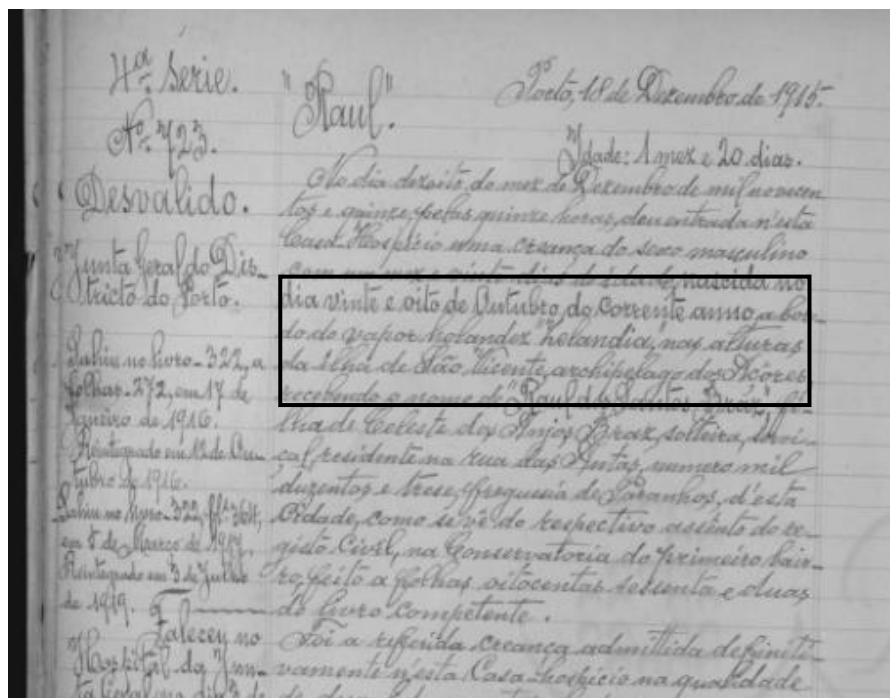 4ª Série.
Nº 723.
Desvalido.
Junta Geral do Dis-
tricto do Porto.
Sahiu no livro - 322, a
folhas - 272, em 17 de
Janeiro de 1916.
Reintegrado em 12 de Ou-
tubro de 1916.
Sahiu no livro - 322, fls
em 5 de Março de 1917.
Reintegrado em 3 de Julho
de 1919.
Faleceu no
Hospital da Jun-
ta Geral no dia 3 de
Porto, 18 de Dezembro de 1915.
"Raul".
Idade: 1 mez e 20 dias.
No dia dezoito do mez de Dezembro de mil novecen-
tos e quinze, pelas quinze horas, deu entrada n'esta
Casa-Hospicio uma creança do sexo masculino
com um mez e vinte dias de idade, nascida no
dia vinte e oito de Outubro, do corrente anno, a bor-
do do vapor holandez "Zelandia", nas alturas
da Ilha de São Vicente, archipelago dos Açores,
recebendo o nome de "Raul dos Santos Braz", fi-
lha de Celeste dos Anjos Braz, solteira, servi-
çal, residente na rua das Antas, numero mil
duzentos e trese, freguesia de Paranhos, d'esta
Cidade, como se vê do respectivo assento do re-
gisto Civil, na Conservatoria do primeiro bair-
ro, feito a folhas oitocentas sessenta e duas
do livro competente.
Foi a referida creança admittida definiti-
vamente n'esta Casa-hospicio na qualidade